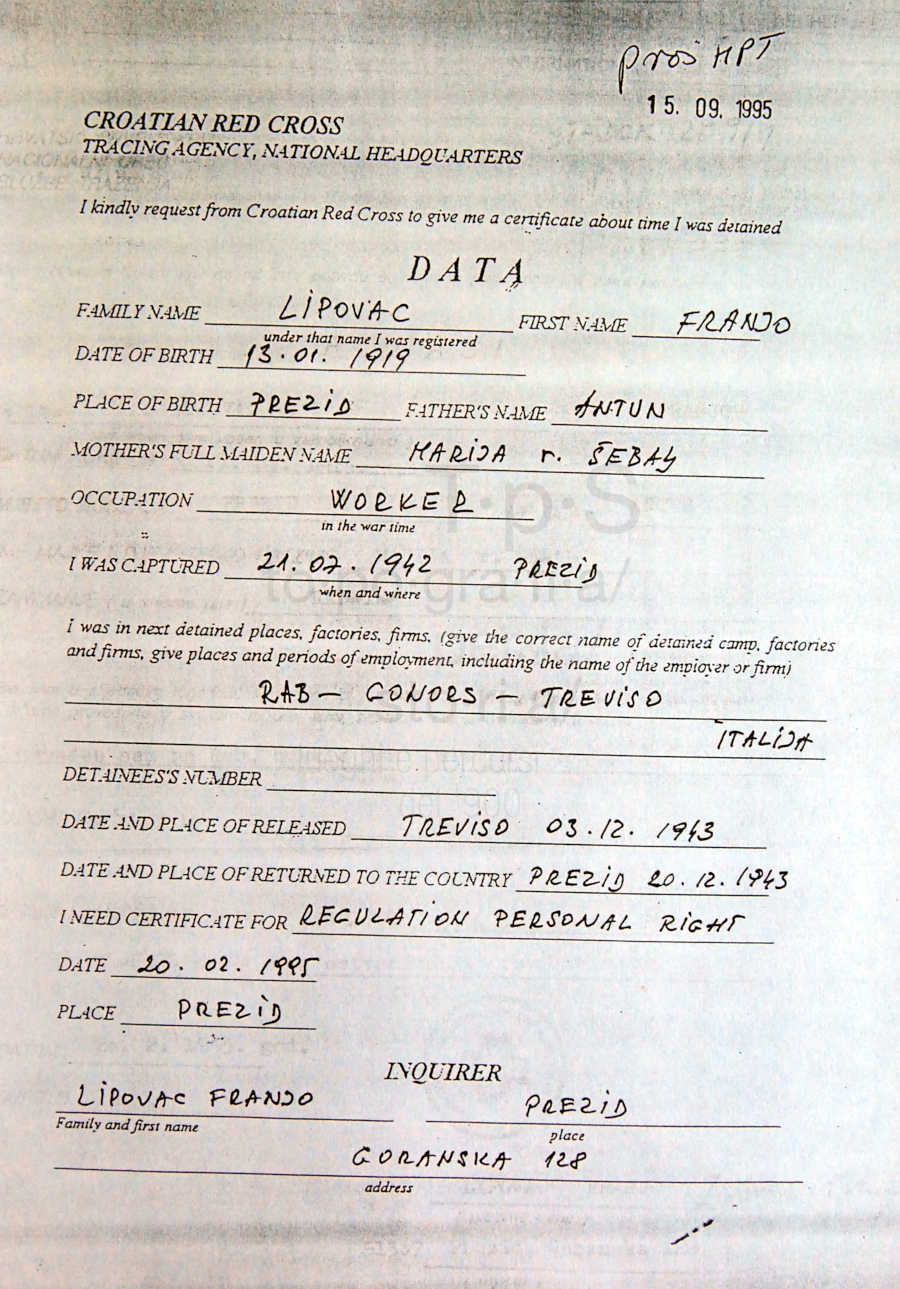 pros HPT
15. 09. 1995
CROATIAN RED CROSS
TRACING AGENCY, NATIONAL HEADQUARTERS
I kindly request from Croatian Red Cross to give me a certificate about time I was detained
DATA
FAMILY NAME LIPOVAC FIRST NAME FRANJO
under that name I was registered
DATE OF BIRTH 13.01. 1919
PLACE OF BIRTH PREZID FATHER'S NAME ANTUN
MOTHER'S FULL MAIDEN NAME MARIJA r.
OCCUPATION WORKER
in the war time
I WAS CAPTURED 21.07.1942 PREZID
when and where
I was in next detained places, factories, firms, (give the correct name of detained camp, factories
and firms, give places and periods of employment, including the name of the employer or firm)
RAB - GONORS - TREVISO
ITALIJA
DETAINEES'S NUMBER
DATE AND PLACE OF RELEASED TREVISO 03.12. 1943
DATE AND PLACE OF RETURNED TO THE COUNTRY PREZID 20.12.1943
I NEED CERTIFICATE FOR REGULATION PERSONAL RIGHT
DATE 20. 02. 1995
PLACE PREZID
INQUIRER
LIPOVAC FRANJO PREZID
Family and first name
place
GORANSKA 128
address
T·p·S
topografia/
storia/